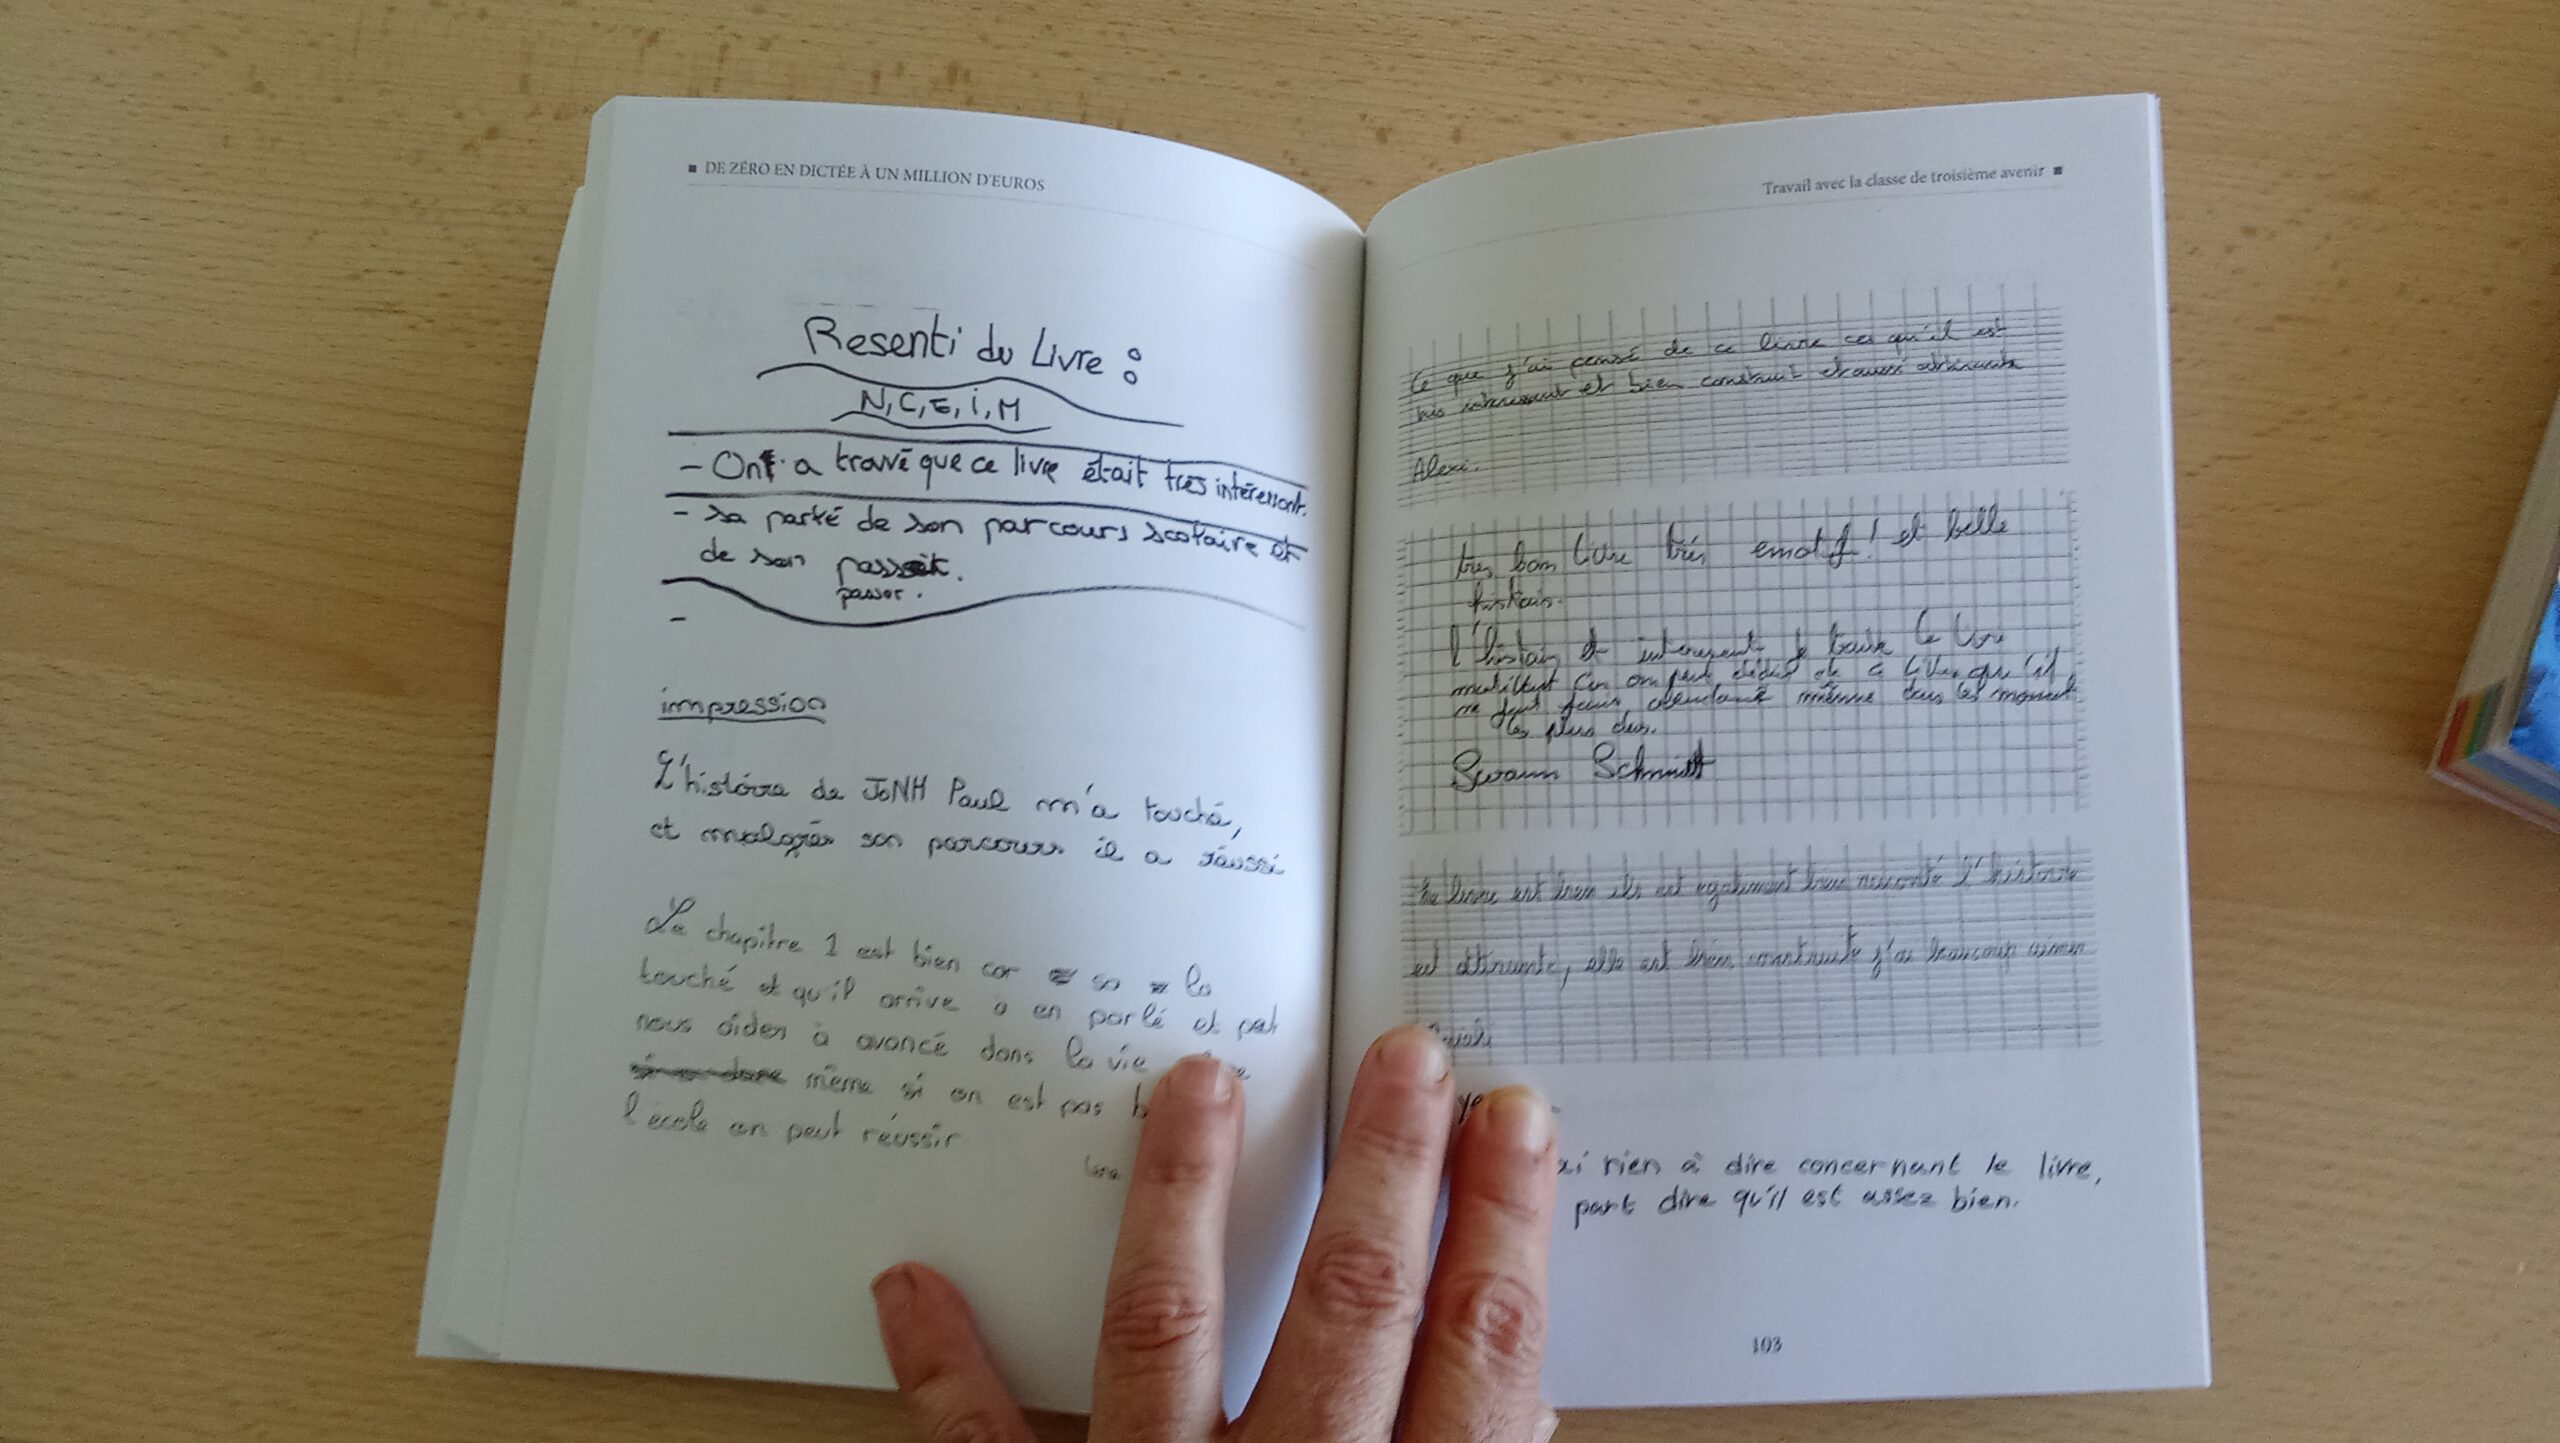 DE ZÉRO EN DICTÉE À UN MILLION D'EUROS
Resenti du Livre :
N, C, E, i, M
- Ont a trouvé que ce livre était très intéressant.
- sa parlé de son parcours scolaire et
de son
passer.
-
impression
L'histoire de JoNH Paul m'a touché,
et malgrés son parcours il a réussi
Le chapitre 1 est bien car sa la
touché et qu'il arrive a en parlé et peut
nous aider à avancé dans la vie
même si on est pas
l'école on peut réussir
Travail avec la classe de troisième avenir
Ce que j'ai pensé de ce livre ces qu'il est
très intéressant et bien construit et aussi attirante
Alexi.
très bon livre très emotif ! et belle
histoir.
l'histoir et interesent je trouve le livre
motivant car on peut de ce livre qu'il
ne faut jamais même dans les moment
les plus durs.
Swann Schmidt
Le livre est bien ils est egalement bien raconté l'histoire
est attirante, elle est bien construite j'ai beaucoup aimer
rien à dire concernant le livre,
part dire qu'il est assez bien.
103